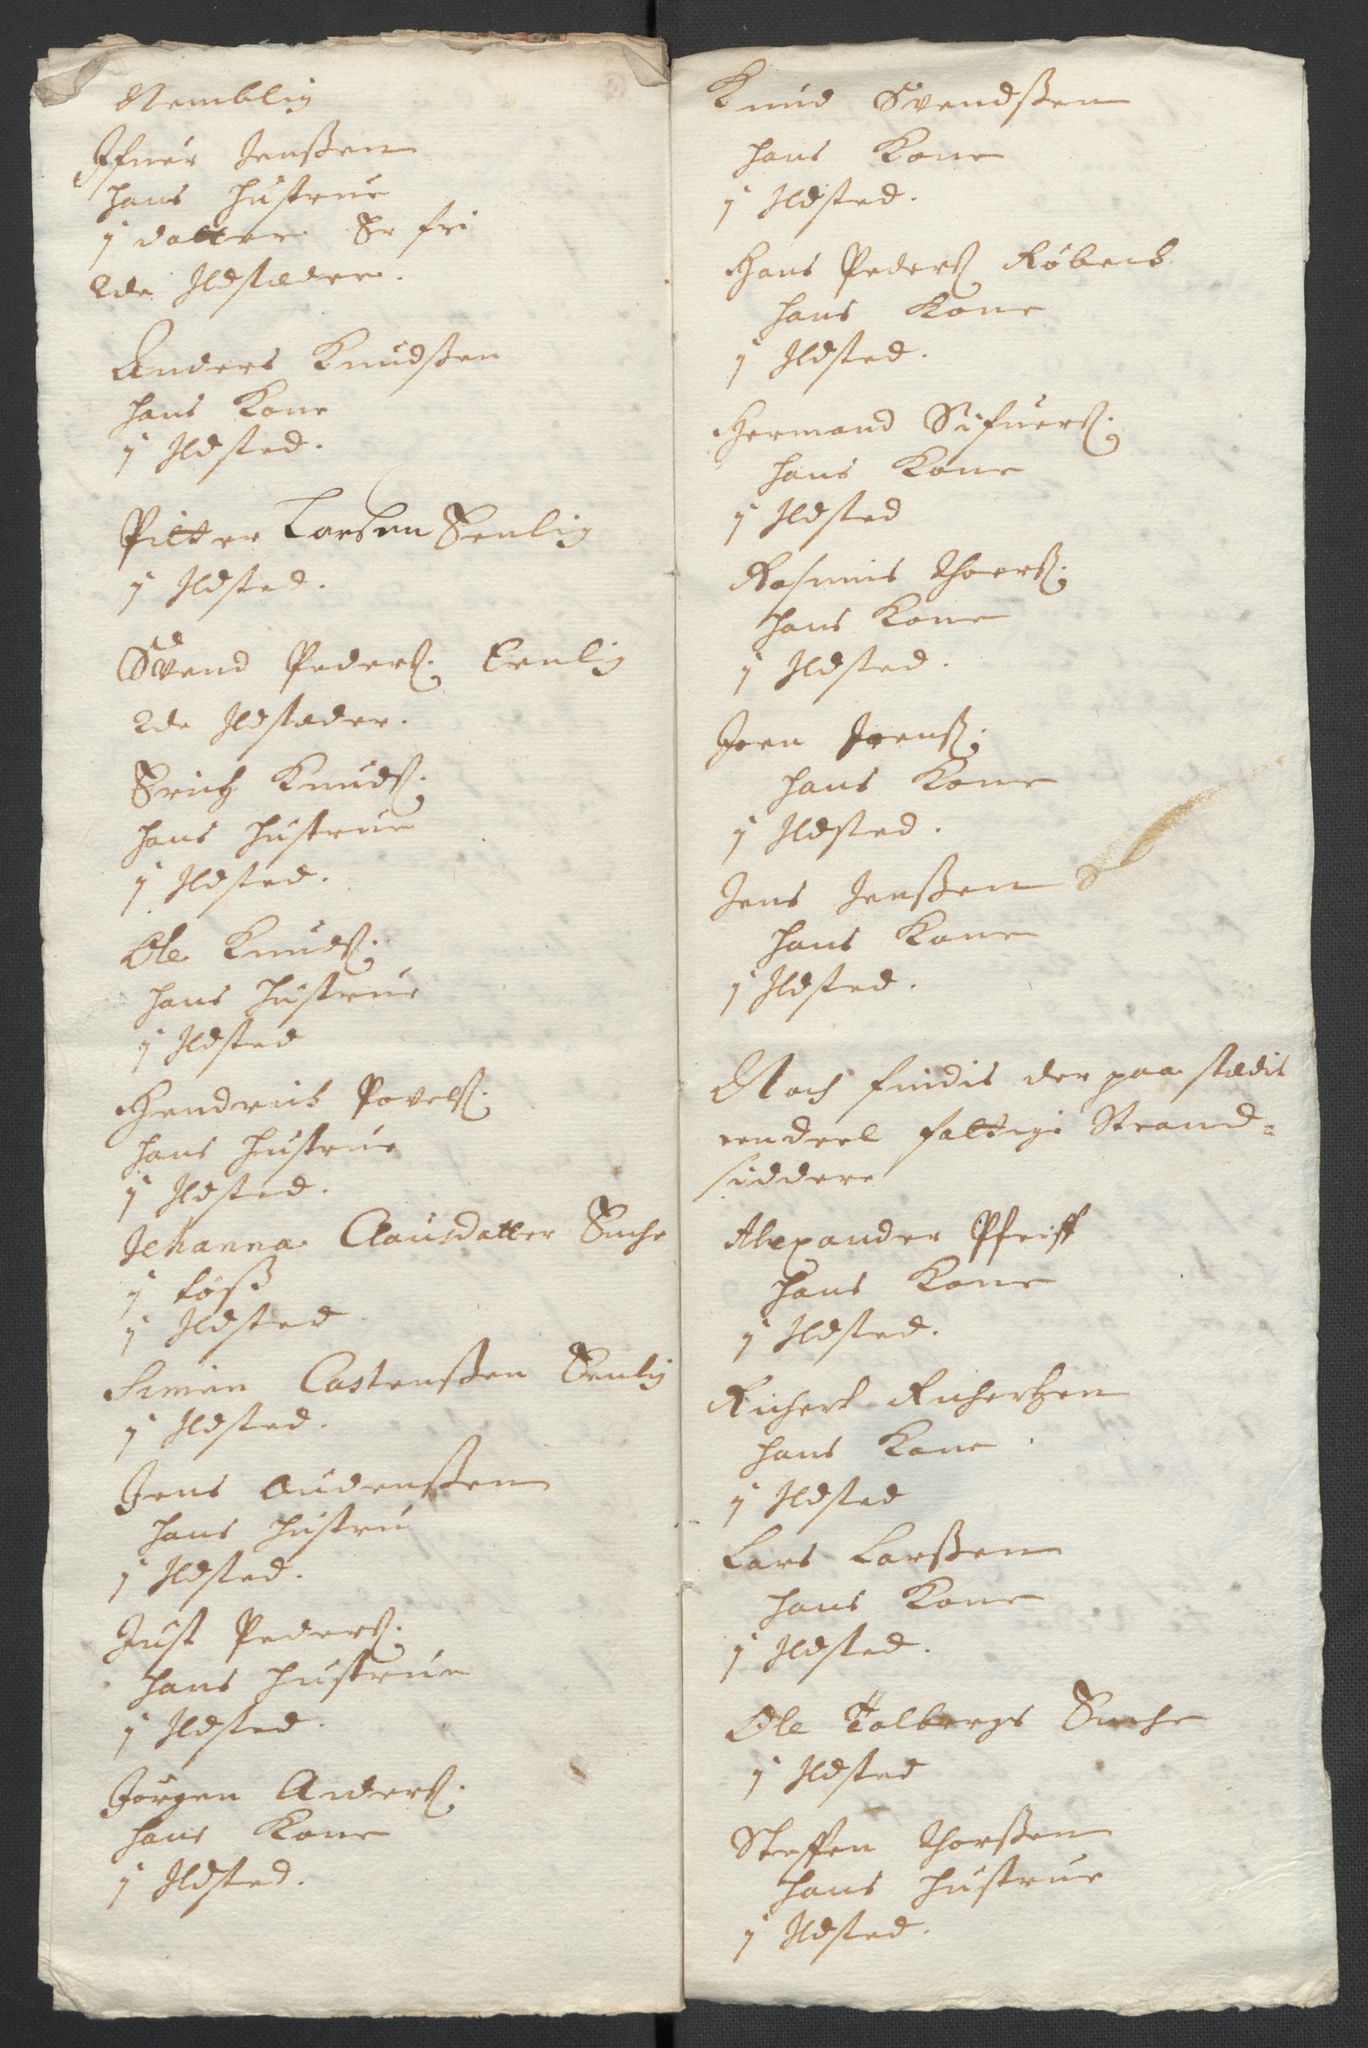 Nemblig
Ifuer Jenßen
hans Hustrue
1 datter Er fri
2de Ildstæder.
Anders Knudßen
hans Kone
1 Ildsted.
Pitter Larsen Eenlig
1 Ildsted.
Svend Peders. Eenlig
2de Ildstæder.
Erich Knuds.
hans Hustrue
1 Ildsted.
Ole Knuds.
hans Hustrue
1 Ildsted
Hendrich Povels.
hans Hustrue
1 Ildsted.
Jehanna Clausdatter Enche
1 töß
1 Ildsted
Simen Castenßen Eenlig
1 Ildsted.
Jens Audenßen
hans Hustru
1 Ildsted.
Just Peders.
hans Hustrue
1 Ildsted.
Jörgen Anders.
hans Kone
1 Ildsted.
Knud Svendßen
hans Kone
1 Ildsted.
Hans Peders Röbech
hans Kone
1 Ildsted.
Hermand Sifuers.
hans Kone
1 Ildsted
Rasmus Thoers.
hans Kone
1 Ildsted.
Joen Joens.
hans Kone
1 Ildsted.
Jens Jenßen
hans Kone
1 Ildsted.
Noch findis der paa stædit
eendeel fattige Strand=
siddere
Alexander Pfeiff
hans Kone
1 Ildsted.
Richert Richertzen
hans Kone
1 Ildsted
Lars Larßen
hans Kone
1 Ildsted.
Ole Talbergs Enche
1 Ildsted
Steffen Thorßen
hans Hustrue
1 Ildsted.